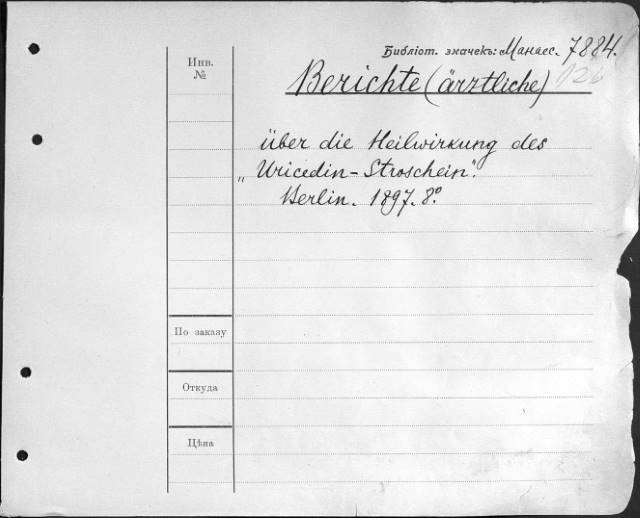 Библіот. значекъ: Манасс. 7884.
Инв.
№
Berichte (ärztliche)
über die Heilwirkung des
„Uricedin-Stroschein".
Berlin. 1897. 8°
По заказу
Откуда
Цѣна